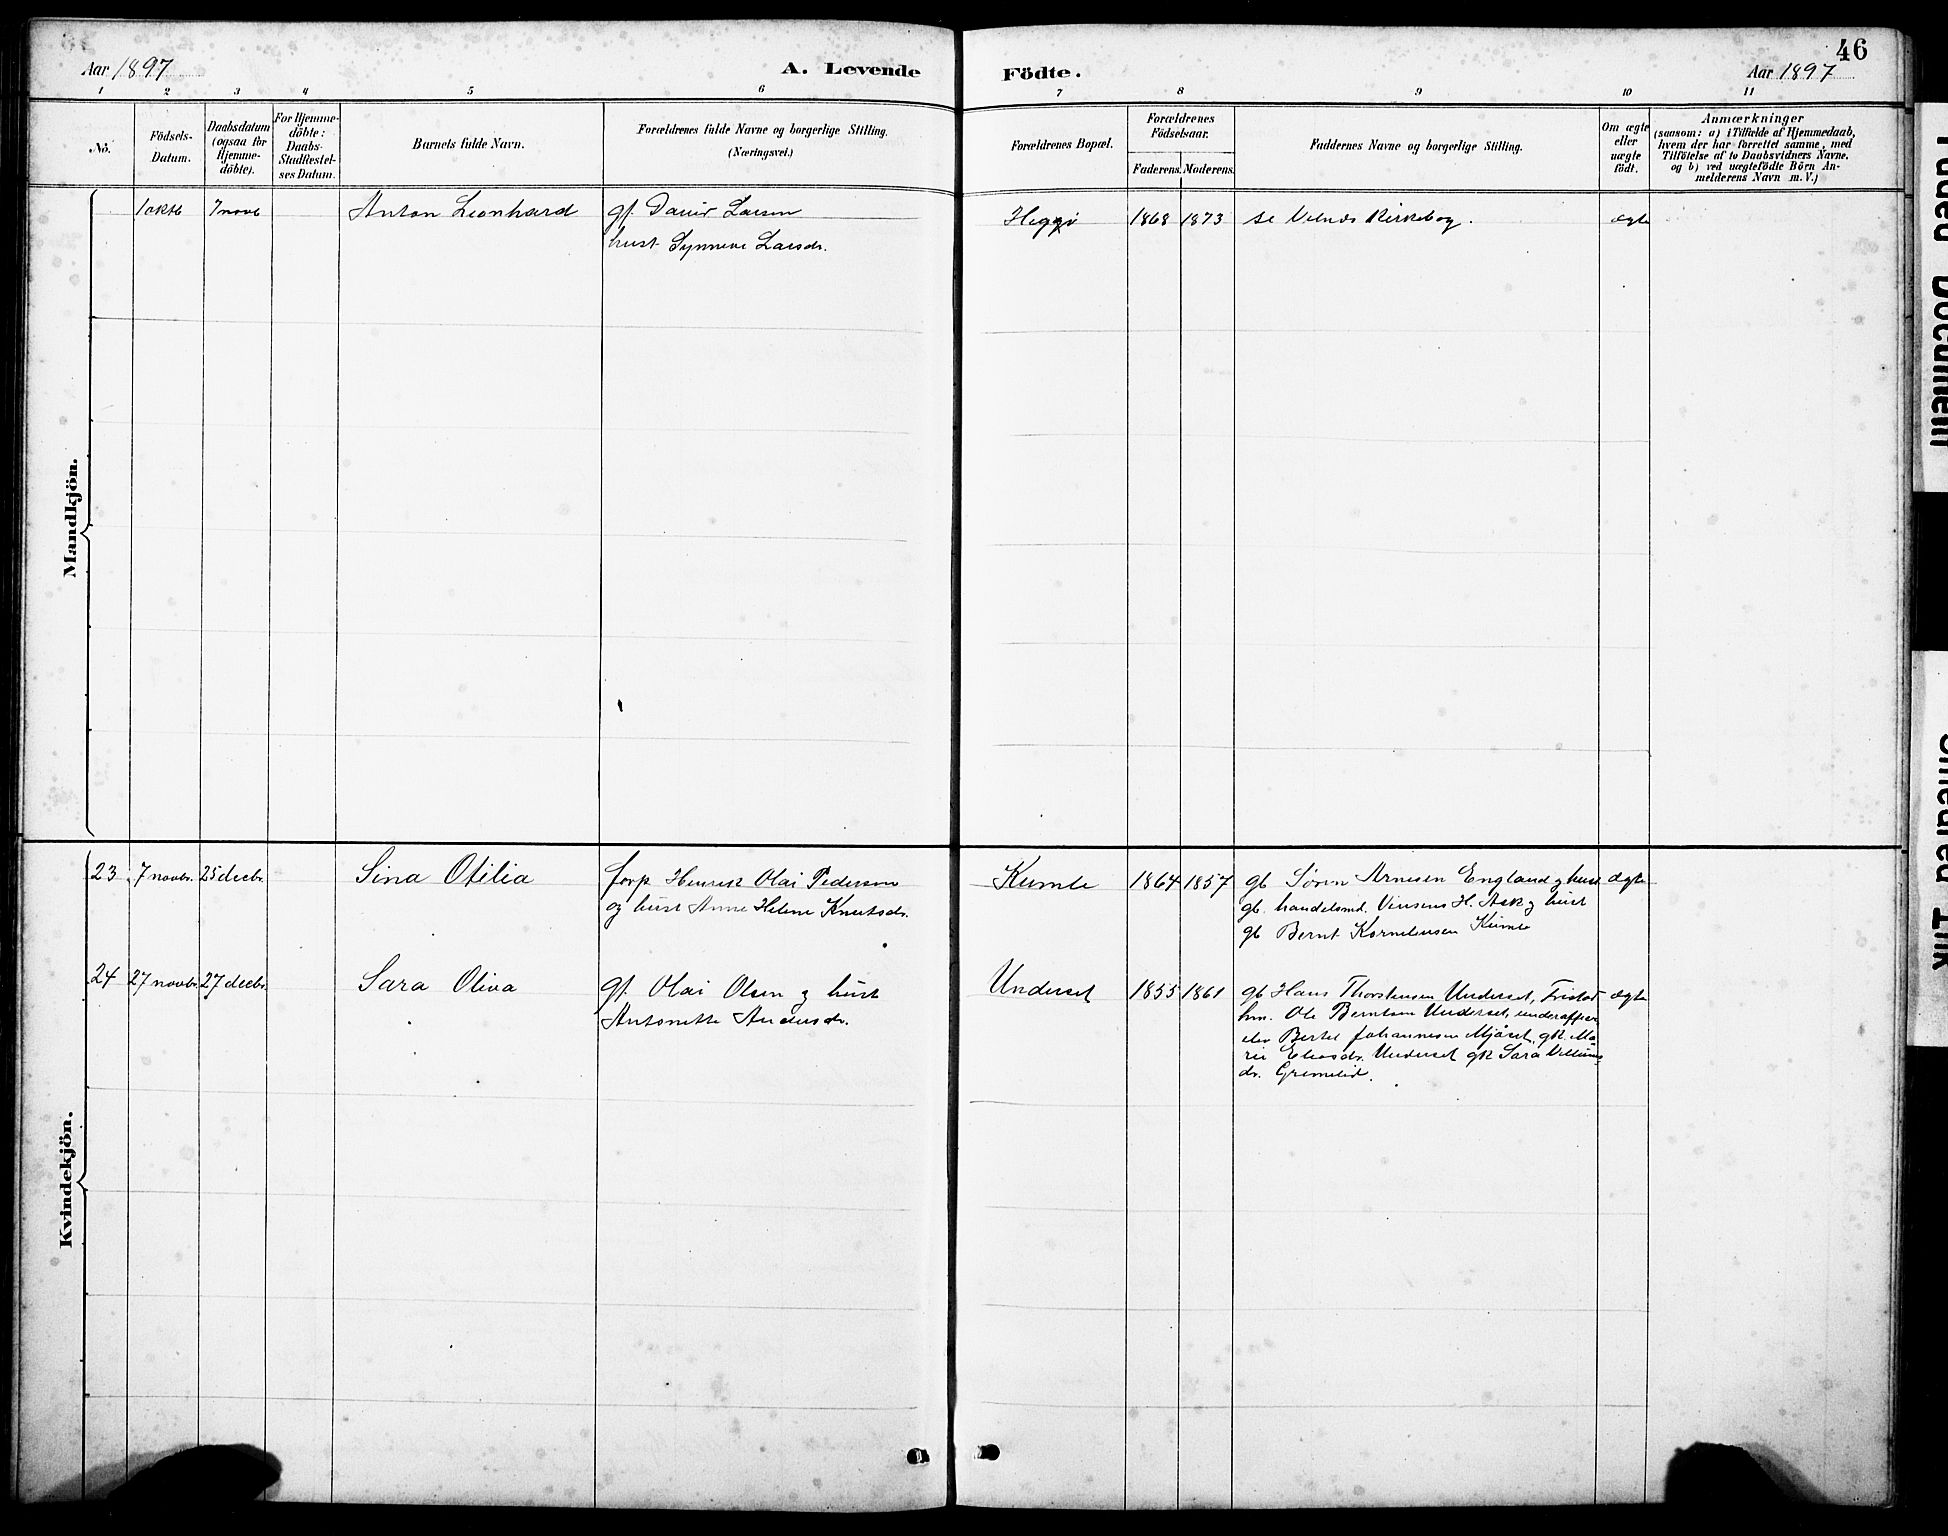 46
Aar 1897 A. Levende Födte. Aar 1897
1 2 3 4 5 6 7 8 9 10 11
No.
Födsels-
Datum.
Daabsdatum
(ogsaa for
Hjemme-
döbte).
For Hjemme-
döbte:
Daabs-
Stadfæstel-
ses Datum.
Barnets fulde Navn.
Forældrenes fulde Navne og borgerlige Stilling.
(Næringsvei.)
Forældrenes Bopæl.
Forældrenes
Födselsaar.
Faderens. Moderens.
Faddernes Navne og borgerlige Stilling.
Om ægte
eller
uægte
födt.
Anmærkninger
(saasom: a) i Tilfælde af Hjemmedaab,
hvem der har forrettet samme, med
Tilföielse af to Daabsvidners Navne.
og b) ved uægtefödte Börn An-
melderens Navn m. V.)
Mandkjön.
1 oktb 7 novb Anton Leonhard gf. David Larsen Heggø 1868 1873 se Vilnæs kirkebog. ægte
hust Synneve Larsdr.
Kvindekjön.
23 7 novbr. 25 decbr. Sina Otilia forp Henrik Olai Pedersen Kumle 1864 1857 gb Søren Arnesen England og hust ægte
og hust Anne Helene Knutsdr. gb. handelsmd. Vinsens H. Ask og hust
gb Bernt Korneliusen Kumle
24 27 novbr. 27 decbr. Sara Oliva gf. Olai Olsen og hust Underset 1855 1861 gb Hans Thorstensen Underset, Tristad ægte
Antonette Andersdr. hm. Ole Berntsen Underset, underofficer
elev Bertel Johannesen Mjåset, gk. Ma
rie Eliasdr. Underset gk Sara Villums
dr. Grimelid.
Faded Document
Smeared Ink